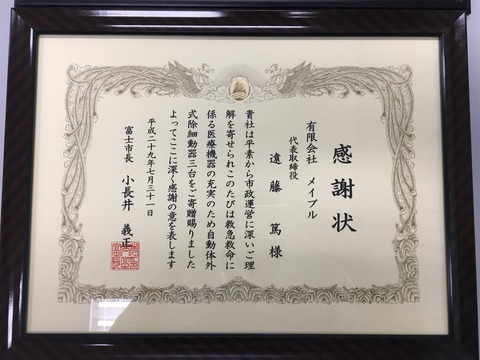 感謝状
有限会社 メイプル
代表取締役
遠藤 篤 様
貴社は平素から市政運営に深いご理
解を寄せられこのたびは救急救命に
係る医療機器の充実のため自動体外
式除細動器三台をご寄贈賜りました
よってここに深く感謝の意を表します
平成二十九年七月三十一日
富士市長 小長井 義正